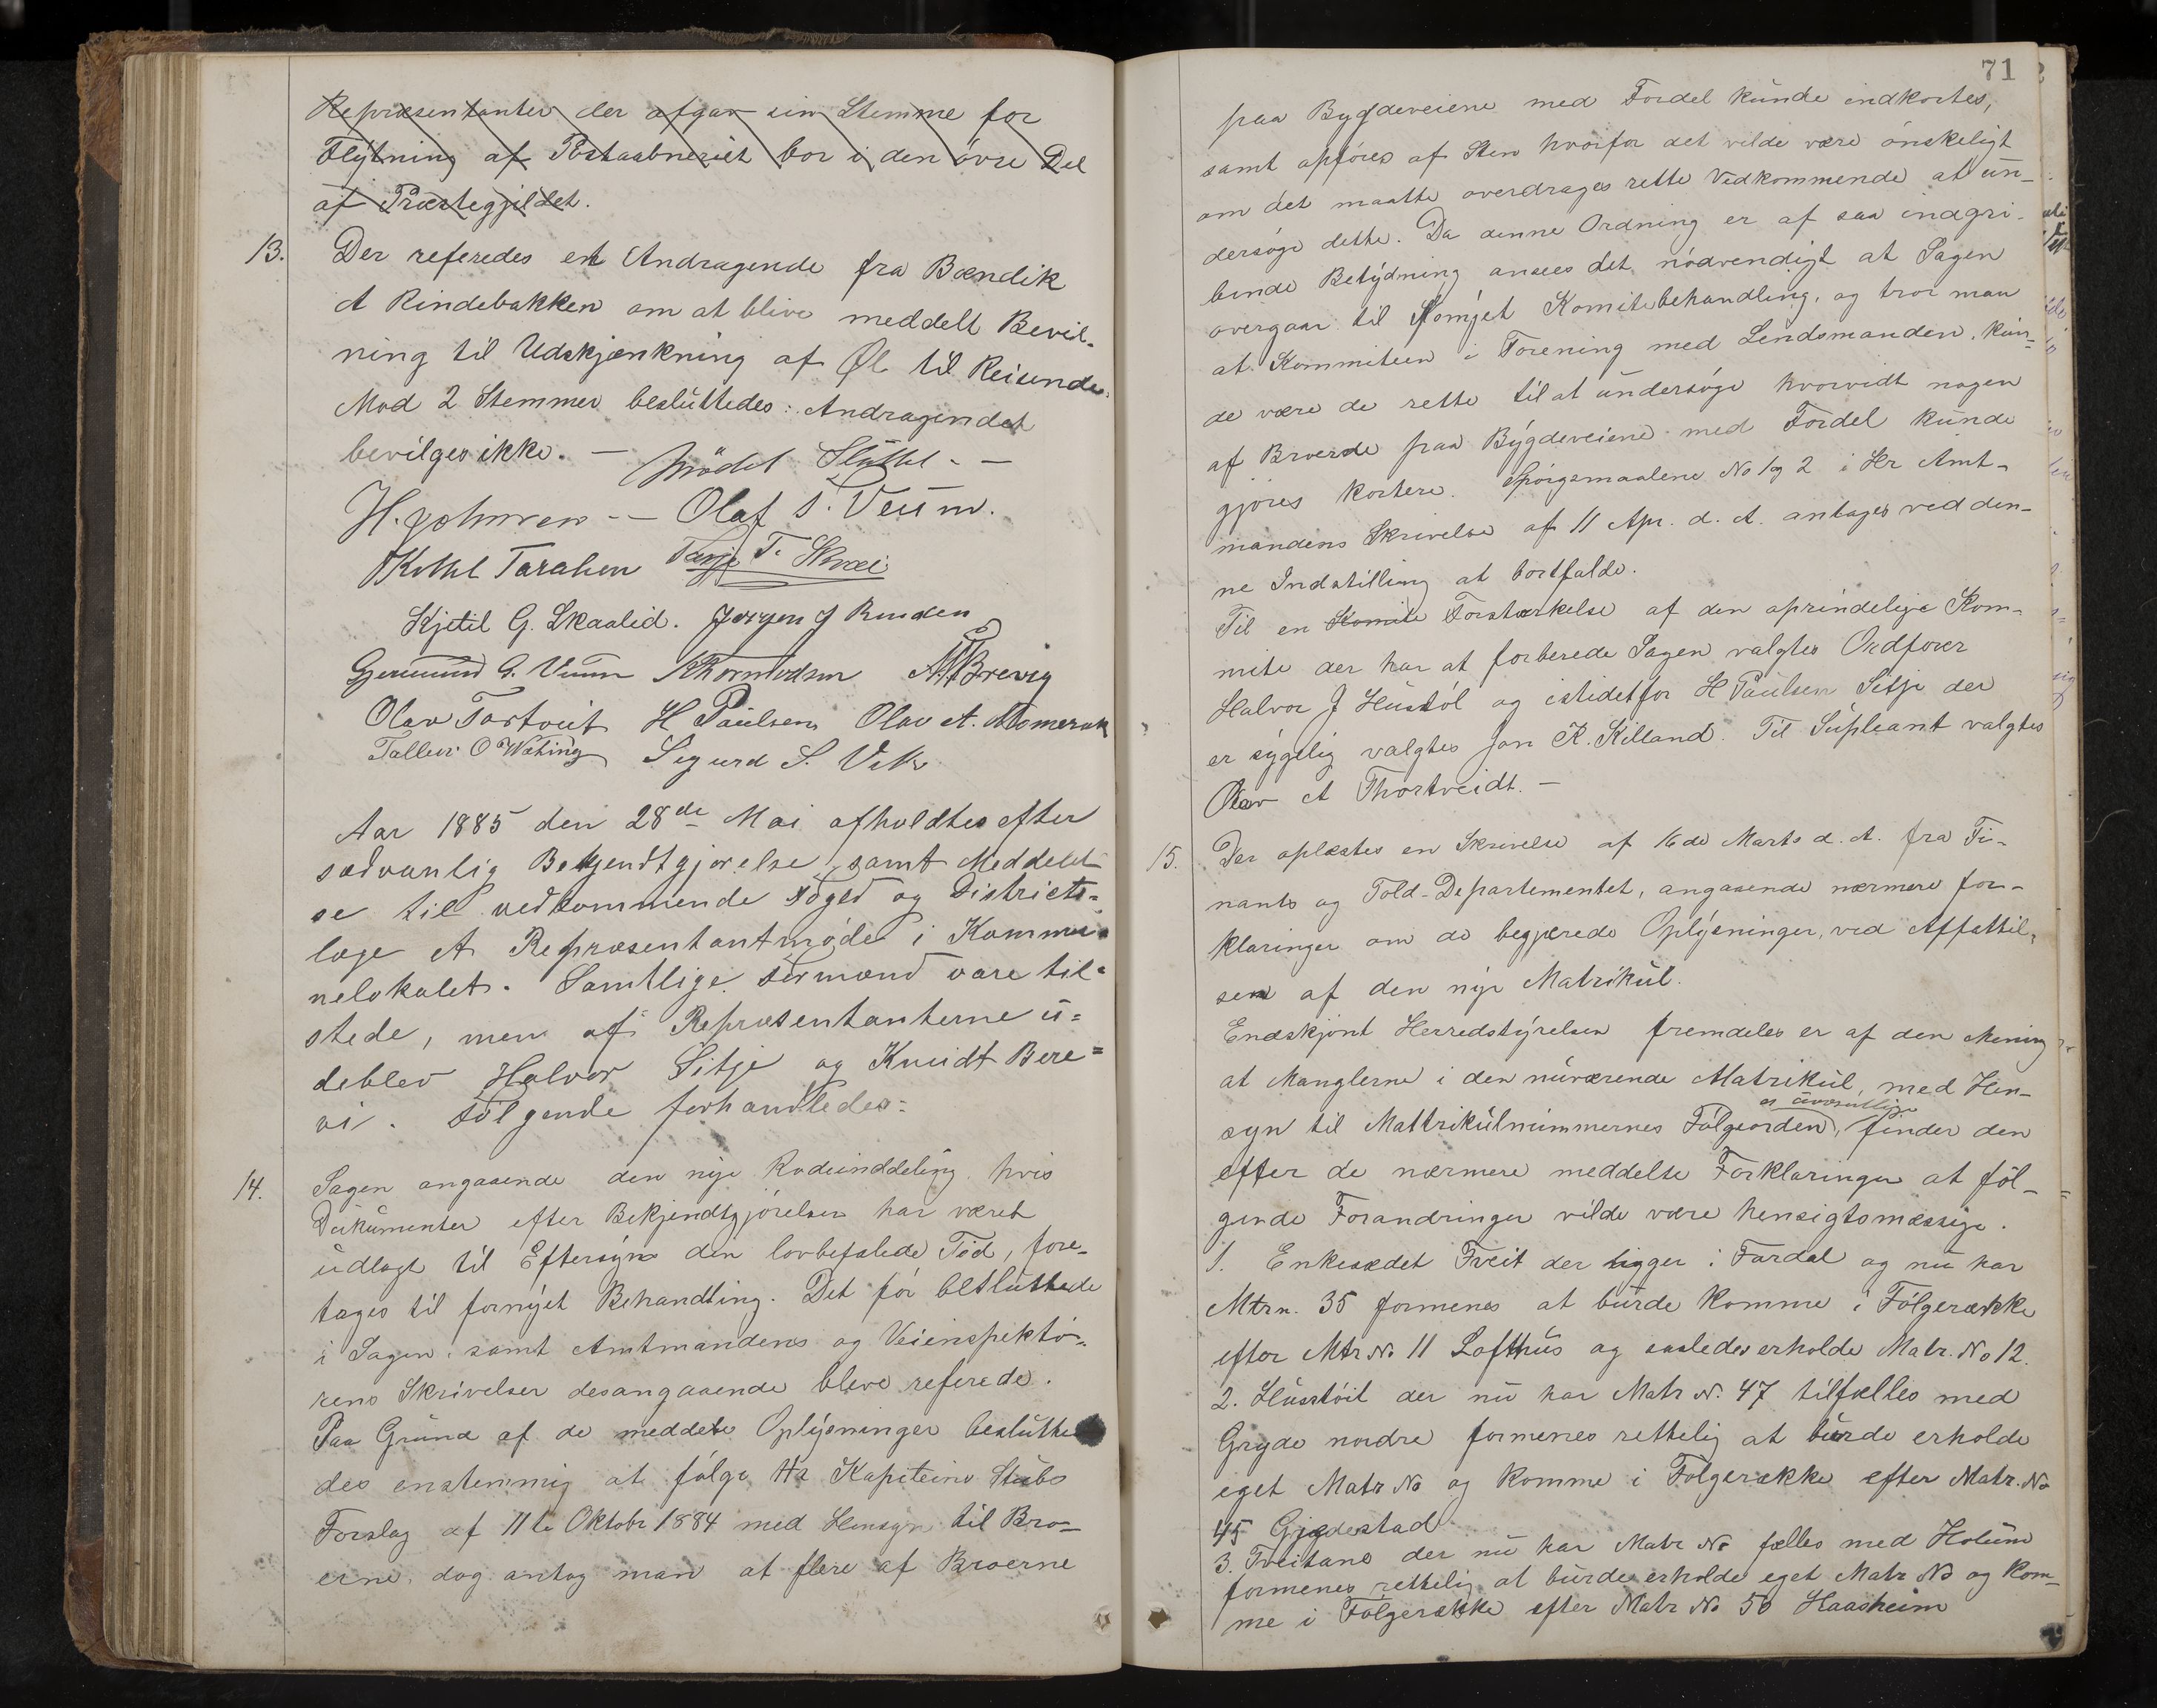 Repræsentanter der afgav sin Stemme for
Flytning af Postaabneriet bor i den övre Del
af Præstegjeldet.
13. Der referedes et Andragende fra Bændik
A Rindebakken om at blive meddelt Bevil-
ning til Udskjænkning af Øl til Reisende.
Mod 2 Stemmer besluttedes: Andragendet
bevilges ikke. — Mödet Sluttet. —
H. Johnsen — Olaf S. Veum.
Kittil Taraldsen Tarje T. Skrei
Kjetil G. Skaalid. Jørgen J Runden
Gjermund G. Veum
Olav Tortveit H Paulsen Olav A. Momerak
Tallev O Wating Sigurd S. Vik
Aar 1885 den 28de Mai afholdtes efter
sædvanlig Bekjendtgjørelse, samt Meddelel
se til vedkommende Foged og Districts=
læge Et Repræsentantmøde i Kommu=
nelokalet. Samtlige Formænd vare til=
stede, men af Repræsentanterne u=
deblev Halvor Sitje og Knudt Bere=
vi. Følgende forhandledes:
14. Sagen angaaende den nye Rodeinddeling, hvis
Dokumenter efter Bekjendtgjörelsen har været
udlagt til Eftersyn den lovbefalede Tid, fore-
toges til fornyet Behandling. Det för besluttede
i Sagen, samt Amtmandens og Veiinspektö-
rens Skrivelser desangaaende bleve referede.
Paa Grund af de meddelte Oplysninger beslutte
des enstemmig at fölge Hr Kapteine Stubs
Forslag af 11te Oktobr 1884 med Hensyn til Bro-
erne, dog antog man at flere af Broerne
71
paa Bygdeveiene med Fordel kunde indkortes,
samt opföres af Sten hvorfor det vilde være önskeligt
om det maatte overdrages rette Vedkommende at un-
dersöge dette. Da denne Ordning er af saa indgri-
bende Betydning ansees det nödvendigt at Sagen
overgaar til fornyet Komitebehandling, og tror man
at Kommiteen i Forening med Lendsmanden, kun-
de være de rette til at undersöge hvorvidt nogen
af Broerde paa Bygdeveiene med Fordel kunde
gjöres kortere. Spörgsmaalene No 1 og 2 i Hr Amt-
mandens Skrivelse af 11 Apr. d. A. antages ved den-
ne Indstilling at bortfalde.
Til en Komite Forstærkelse af den oprindelige Kom-
mite der har at forberede Sagen valgtes Ordförer
Halvor J Hustöl og istedetfor H Paulsen Sitje der
er sygelig valgtes Jon K. Killand. Til Supleant valgtes
Olav A Thortveidt. —
15. Der oplæstes en Skrivelse af 16de Marts d. A. fra Fi-
nants og Told-Departementet, angaaende nærmere for-
klaringer om de begjærede Oplysninger, ved Affattel-
sen af den nye Matrikul.
Endskjönt Herredstyrelsen fremdeles er af den Mening
at Manglerne i den nuværende Matrikul, med Hen-
er uvæsentlige
syn til Mattrikulnummernes Fölgeorden, finder den
efter de nærmere meddelte Forklaringer at föl-
gende Forandringer vilde være hensigtsmæssige.
1. Enkesædet Tveit der ligger i Fardal og nu har
Mtrn. 35 formenes at burde komme i Fölgerække
efter Mtr No 11 Lofthus og saaledes erholde Matr. No 12.
2. Husstöil der nu har Matr N. 47 tilfælles med
Gryde nordre formenes rettelig at burde erholde
eget Matr No og komme i Fölgerække efter Matr. No
45 Gjædestad
3. Tveitane der nu har Matr No fælles med Holum
formenes rettelig at burde erholde eget Matr No og kom-
me i Fölgerække efter Matr No 50 Haasheim